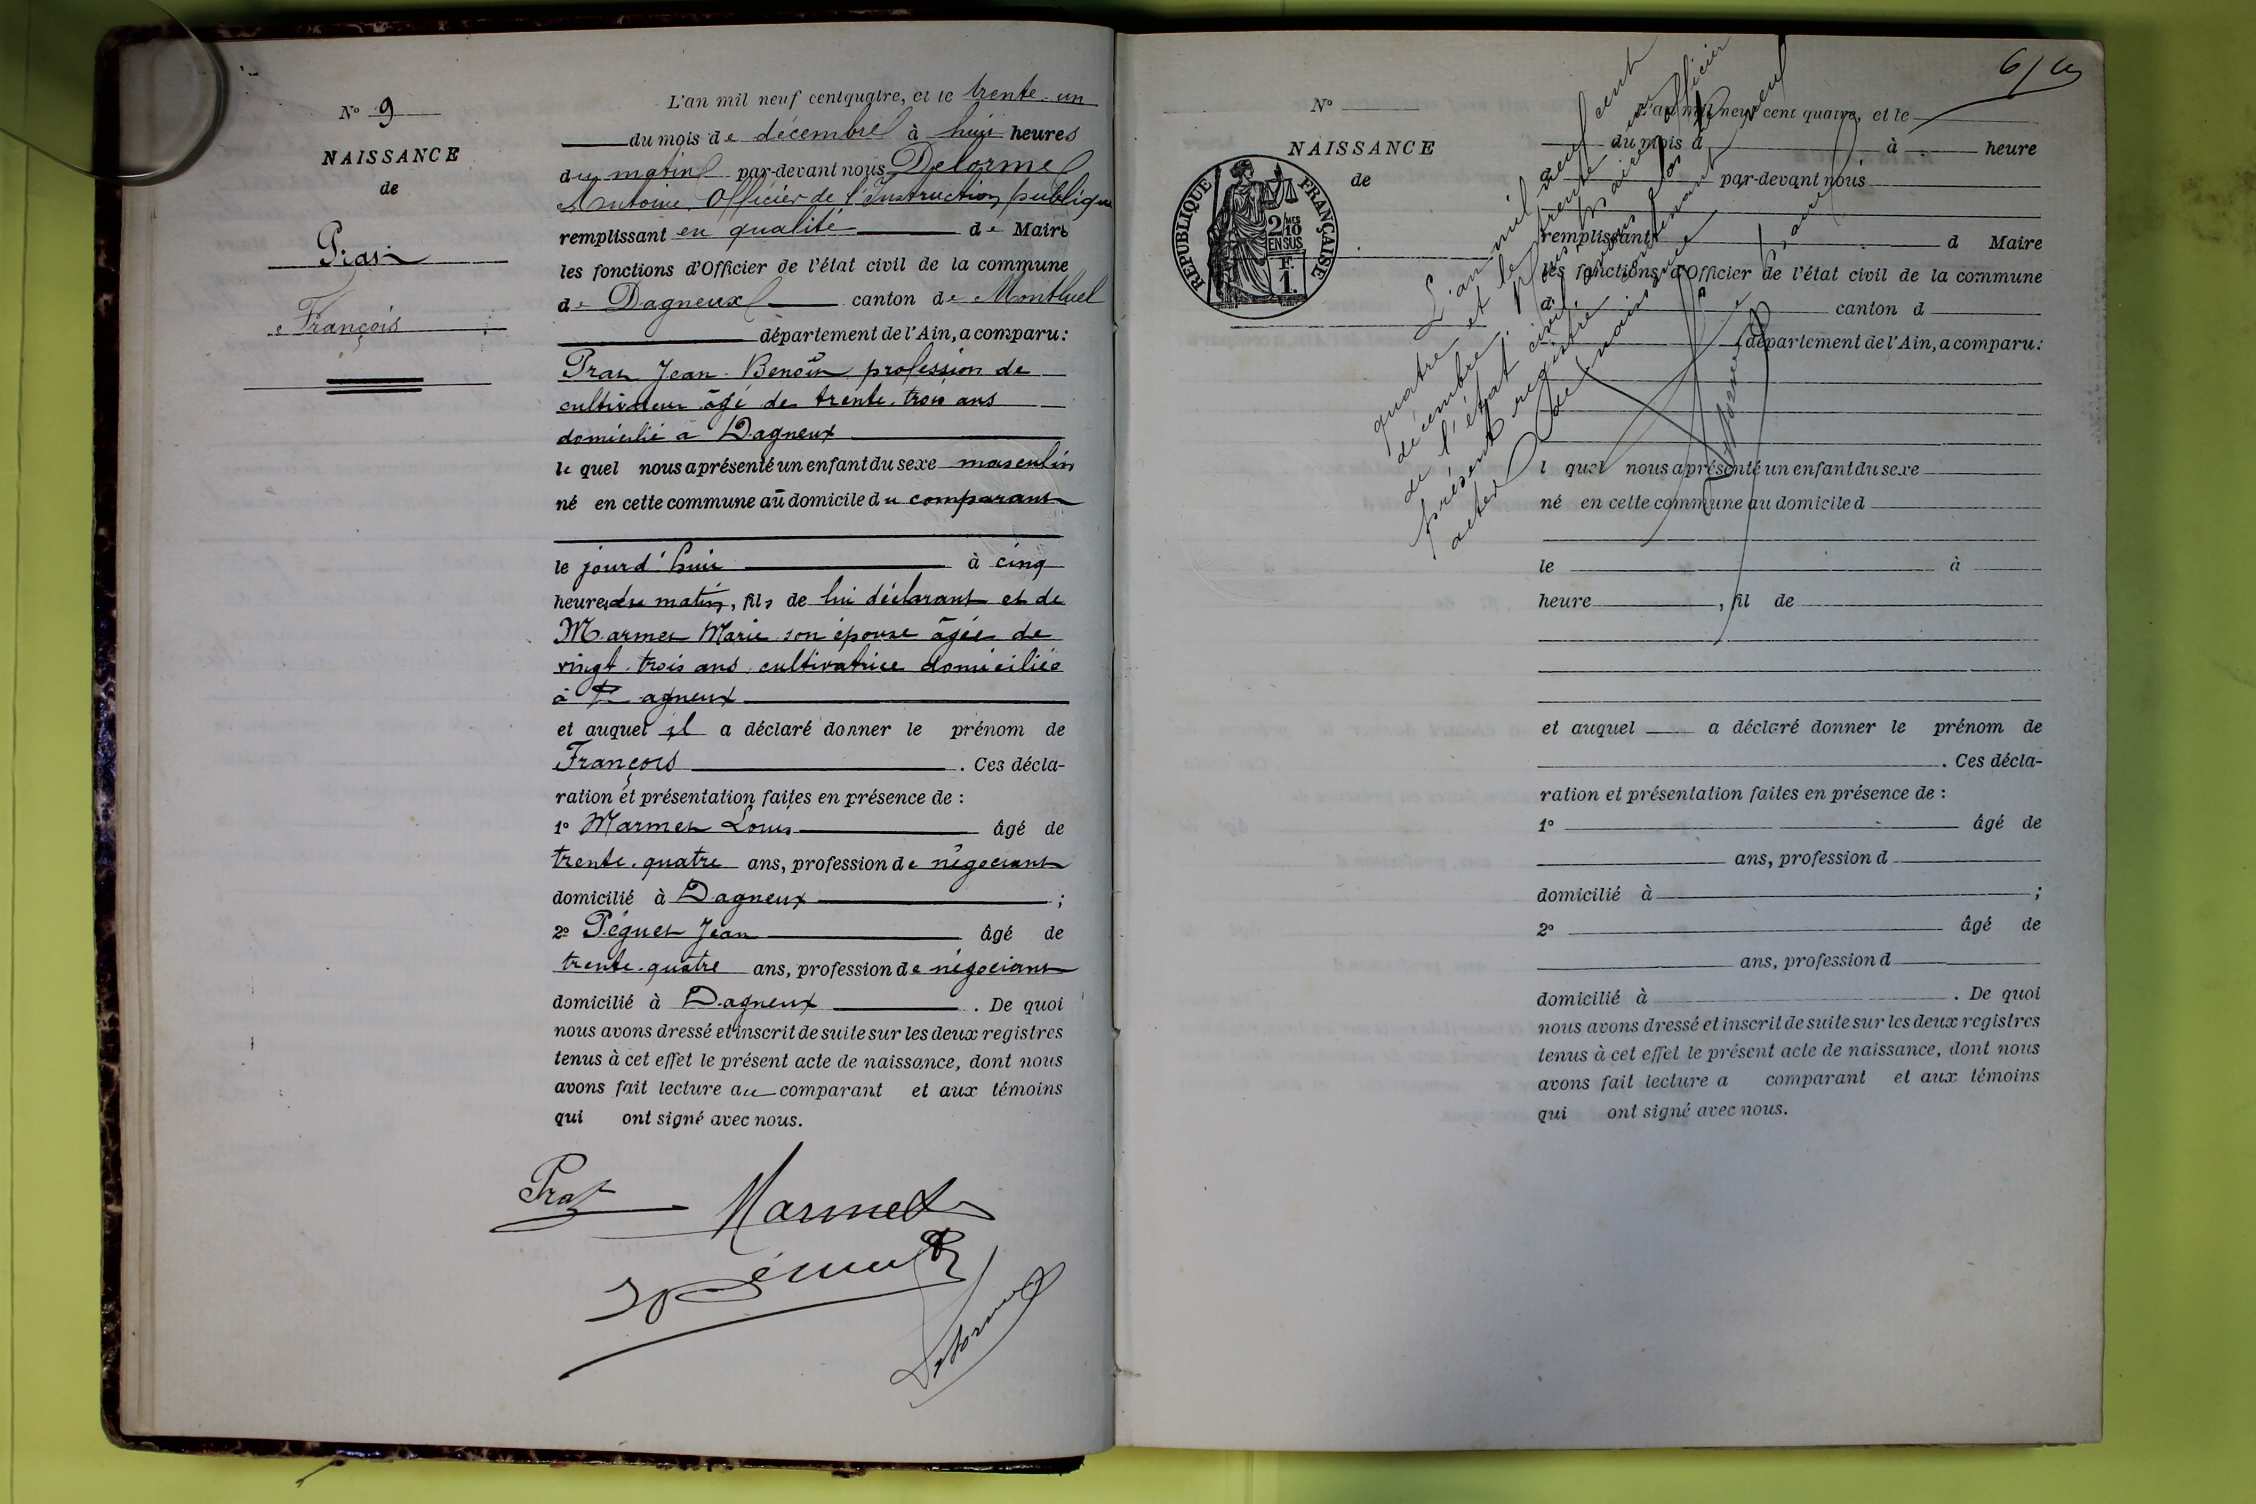 N° 9
NAISSANCE
de
Prat
François
L'an mil neuf cent quatre, et le trente-un
du mois de décembre à huit heures
du matin par-devant nous Delorme
Antoine, Officier de l'Instruction publique
remplissant en qualité de Maire
les fonctions d'Officier de l'état civil de la commune
de Dagneux canton de Montluel
département de l'Ain, a comparu:
Prat Jean-Benoît profession de
cultivateur âgé de trente-trois ans
domicilié à Dagneux
le quel nous a présenté un enfant du sexe masculin
né en cette commune au domicile du comparant
le jourd'hui à cinq
heures du matin, fils de lui déclarant et de
Marmet Marie son épouse âgée de
vingt-trois ans, cultivatrice domiciliée
à Dagneux
et auquel il a déclaré donner le prénom de
François . Ces décla-
ration et présentation faites en présence de :
1° Marmet Louis âgé de
trente-quatre ans, profession de négociant
domicilié à Dagneux ;
2° Péguet Jean âgé de
trente-quatre ans, profession de négociant
domicilié à Dagneux . De quoi
nous avons dressé et inscrit de suite sur les deux registres
tenus à cet effet le présent acte de naissance, dont nous
avons fait lecture au comparant et aux témoins
qui ont signé avec nous.
Prat
Marmet
Delorme
6/
N°
NAISSANCE
de
RÉPUBLIQUE FRANÇAISE
2/10 MES
EN SUS
F.
1.
L'an mil neuf cent quatre, et le
du mois d à heure
d par-devant nous
remplissant d Maire
les fonctions d'Officier de l'état civil de la commune
d canton d
département de l'Ain, a comparu:
l quel nous a présenté un enfant du sexe
né en cette commune au domicile d
le à
heure , fil de
et auquel a déclaré donner le prénom de
. Ces décla-
ration et présentation faites en présence de :
1° âgé de
ans, profession d
domicilié à ;
2° âgé de
ans, profession d
domicilié à . De quoi
nous avons dressé et inscrit de suite sur les deux registres
tenus à cet effet le présent acte de naissance, dont nous
avons fait lecture a comparant et aux témoins
qui ont signé avec nous.
L'an mil neuf cent
quatre et le trente un
décembre, Nous Maire officier
de l'état civil avons clos le
présent registre contenant neuf
actes de naissance
Delorme